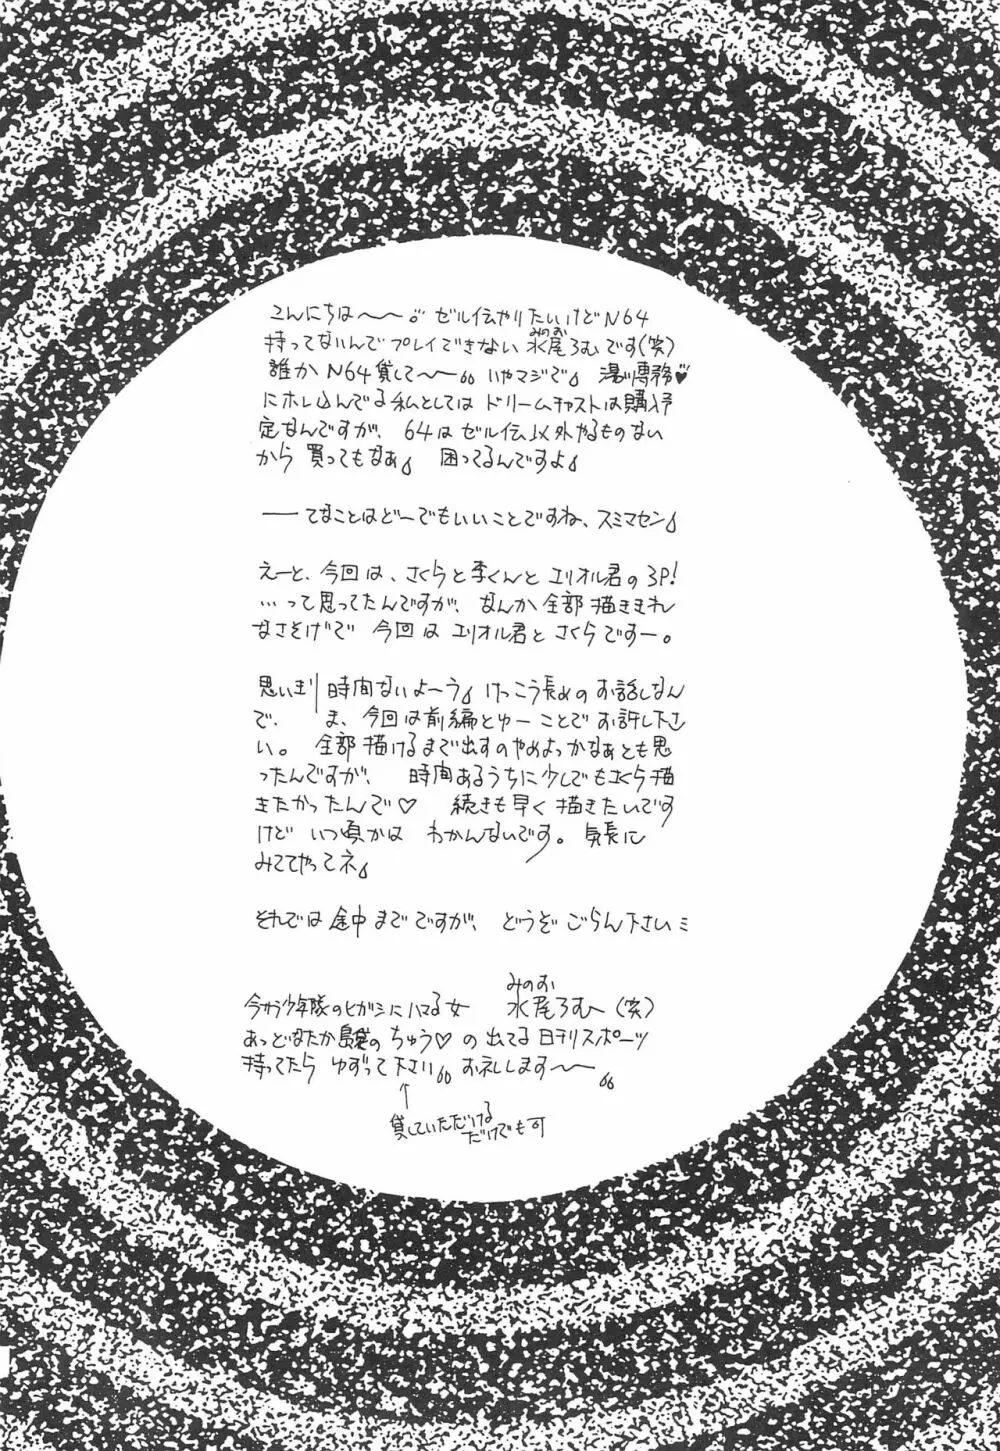 こんにちは〜〜。ゼル伝やりたいけどN64
持ってないんでプレイできない 水尾ろむです(笑)
みのお
誰か N64貸して〜〜 いやマジで 湯川専務♥
にホレ込んでる私としては ドリームキャストは購入予
定なんですが、 64は ゼル伝以外やるものない
から 買ってもなぁ 困ってるんですよ
――てなことはどーでもいいことですね、スミマセン
えーと、今回は、さくらと李くんと エリオル君の 3P!
…って思ってたんですが、なんか全部描ききれ
なさそげで 今回は エリオル君と さくらですー。
思いきり 時間ないよーう けっこう長めの お話しなん
で、 ま、今回は前編とゆーことで お許し下さ
い。 全部描けるまで出すのやめよっかなぁとも思
ったんですが、 時間あるうちに少しでもさくら描
きたかったんで♡ 続きも早く描きたいです
けど いつ頃かは わかんないです。 気長に
みててやってネ
それでは 途中までですが、 どうぞ ごらん下さい
今さら少年隊のヒガシに ハマる女 水尾ろむ〜(笑)
みのお
あっどなたか 島袋の ちゅう♡の 出てる 日刊スポーツ
持ってたら ゆずって下さい お礼します〜〜
↑
貸していただける
だけでも可